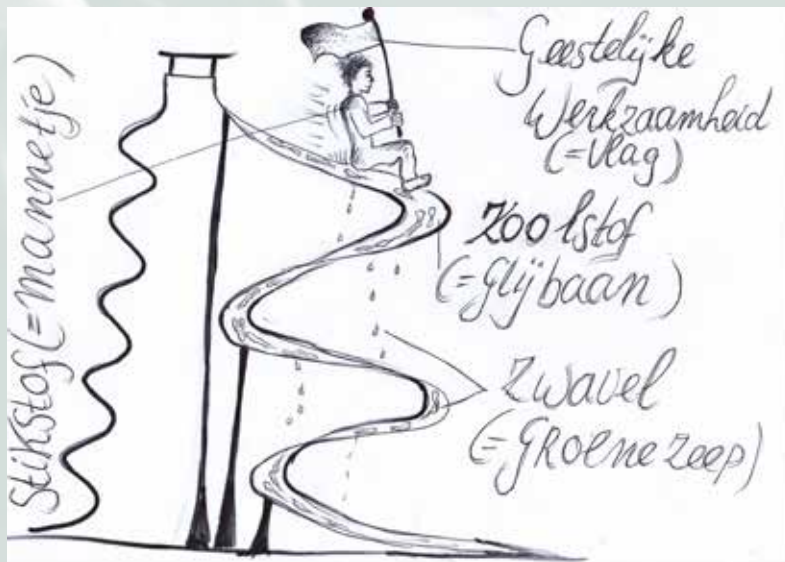 Stikstof (=mannetje)
Geestelijke
Werkzaamheid
(=vlag)
Koolstof
(=glijbaan)
Zwavel
(=GROENE ZEEP)